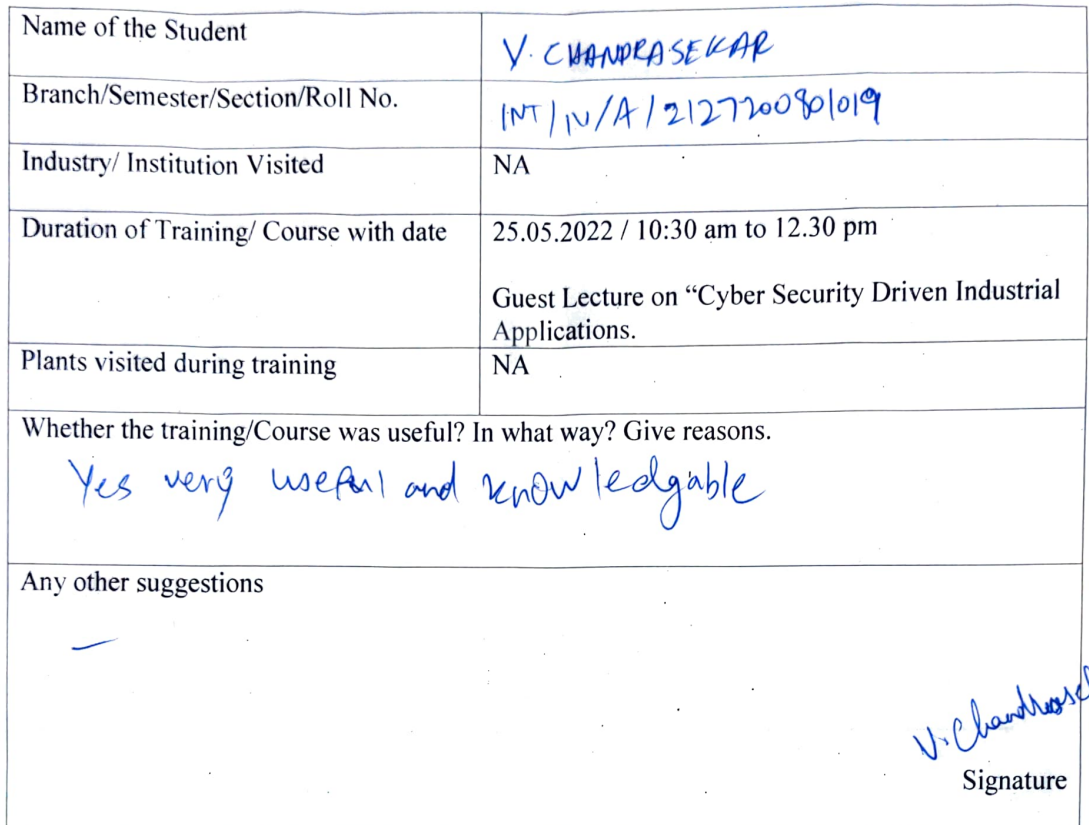 Name of the Student V. CHANDRASEKAR
Branch/Semester/Section/Roll No. INT/IV/A/212720080|019
Industry/ Institution Visited NA
Duration of Training/ Course with date 25.05.2022 / 10:30 am to 12.30 pm
Guest Lecture on “Cyber Security Driven Industrial
Applications.
Plants visited during training NA
Whether the training/Course was useful? In what way? Give reasons.
Yes very useful and knowledgable
Any other suggestions
—
V. Chandrasek
Signature